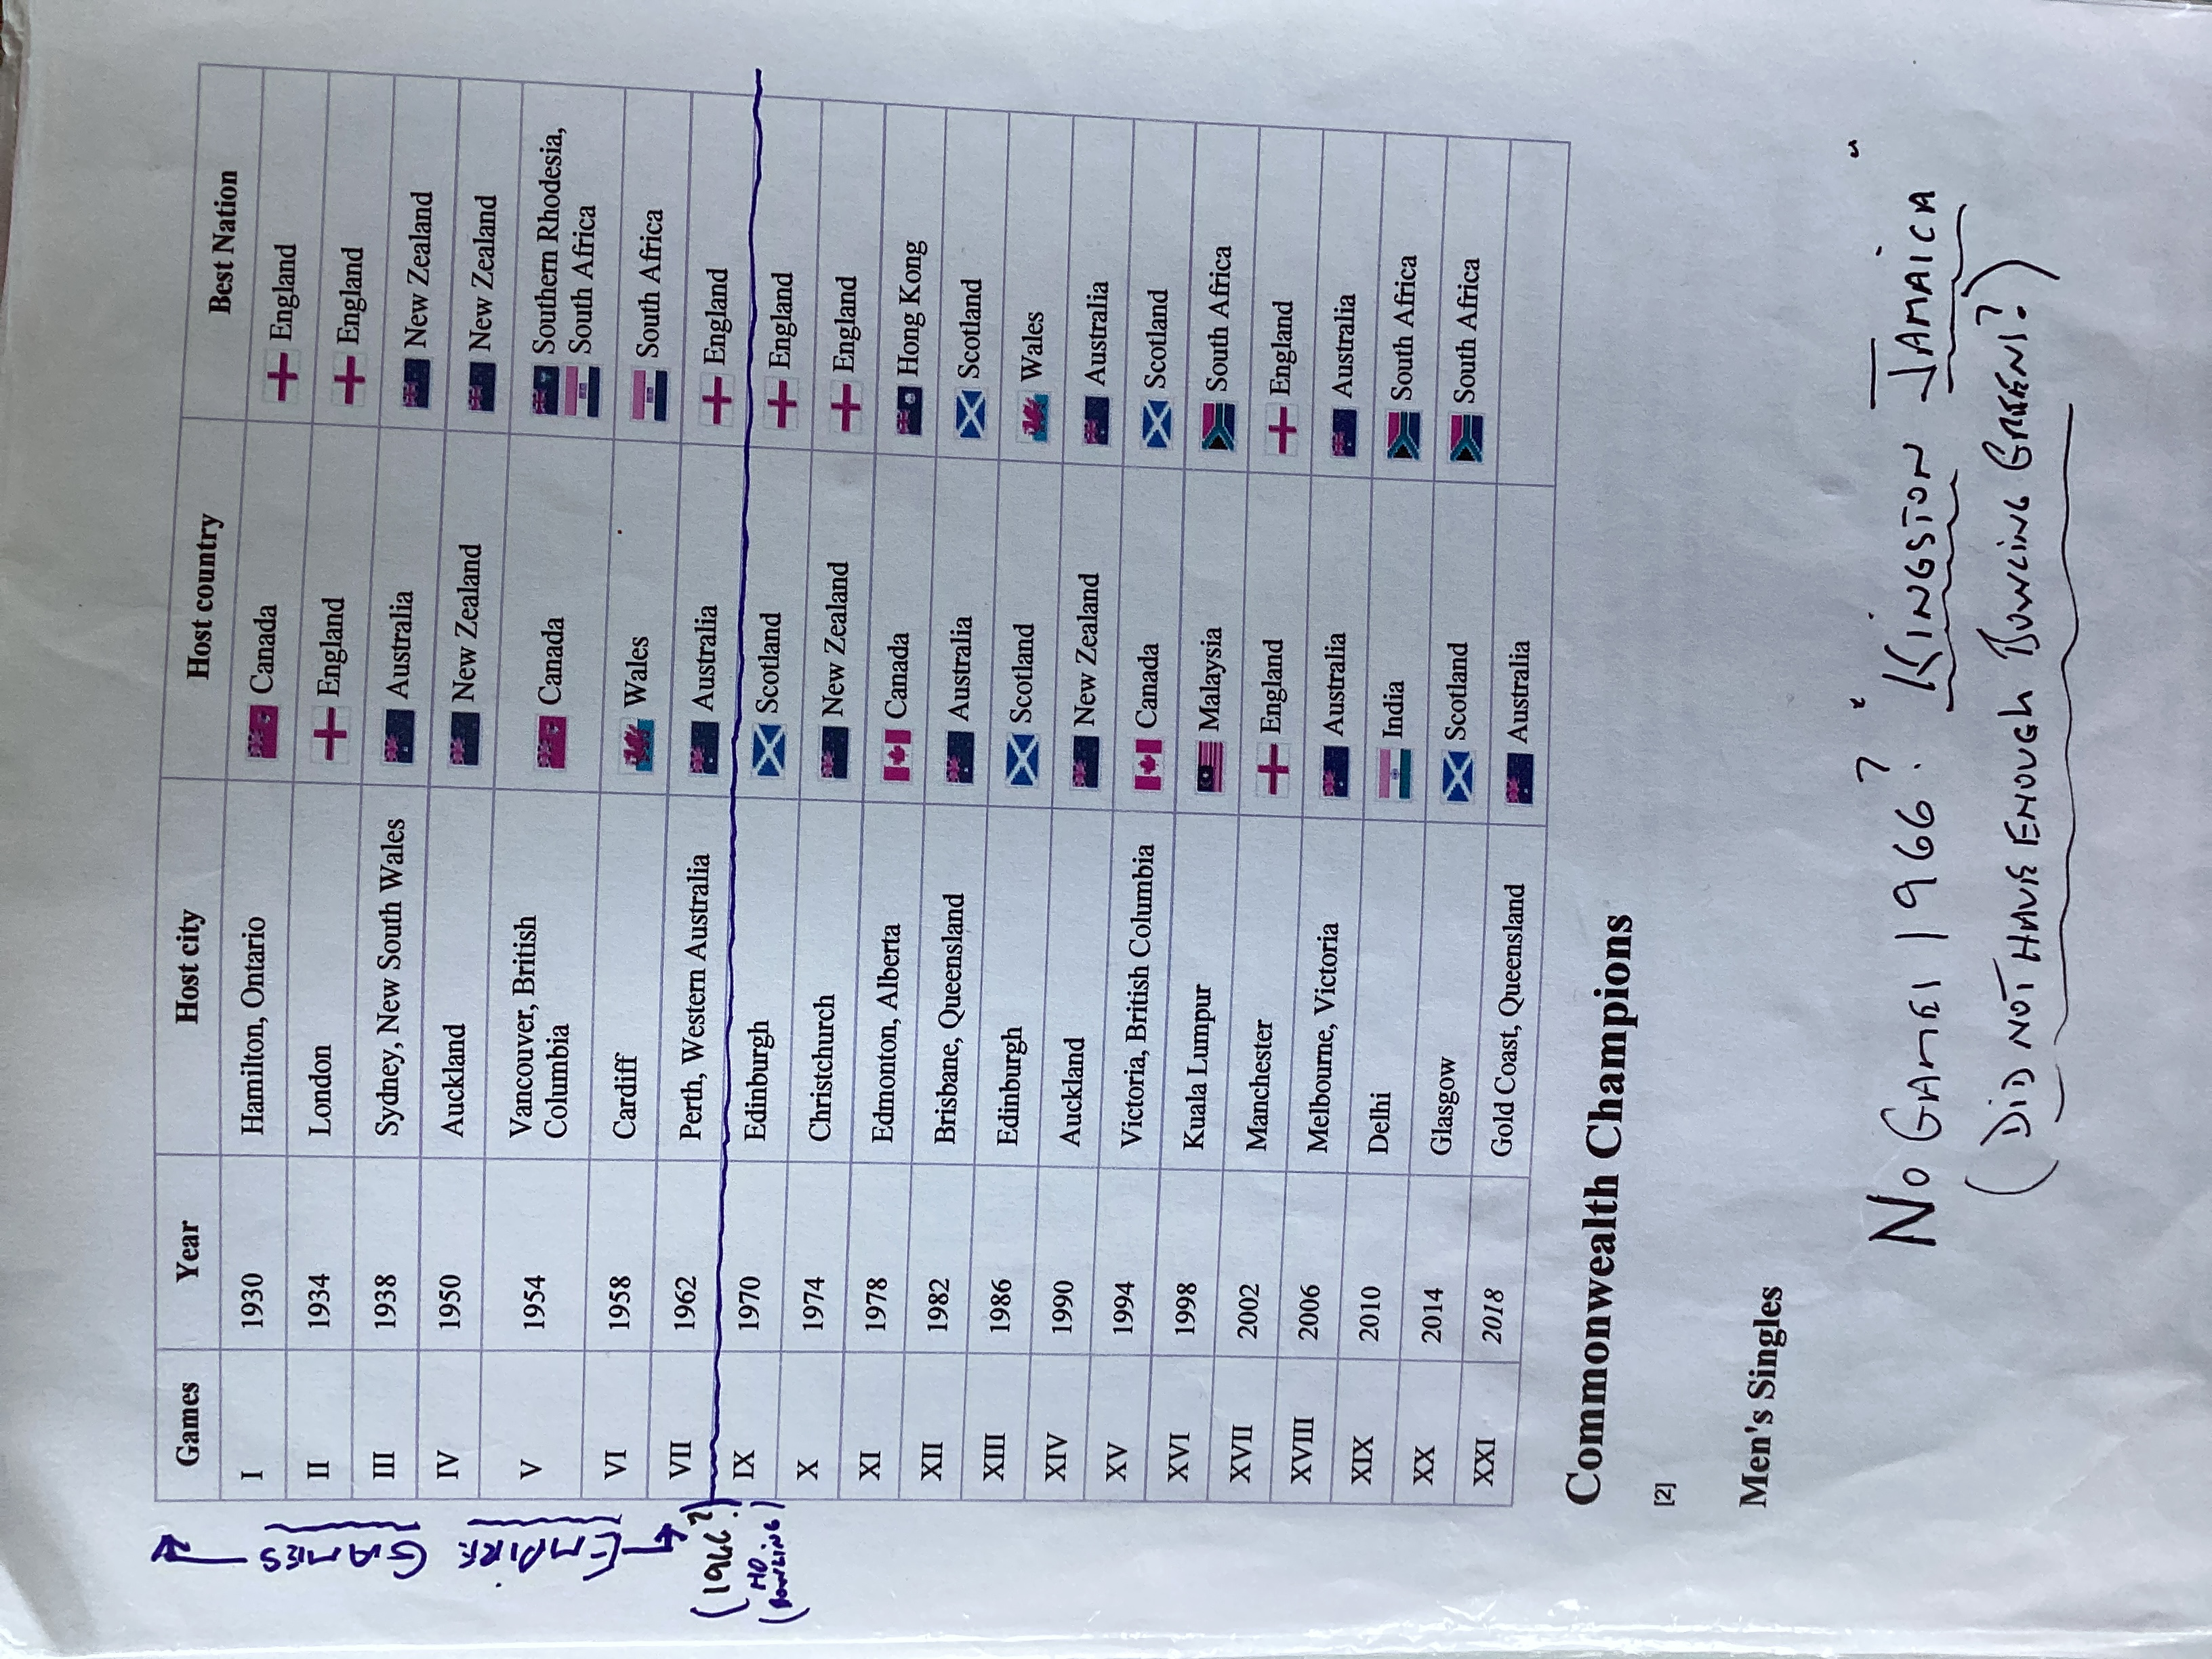 Games Year Host city Host country Best Nation
I 1930 Hamilton, Ontario Canada England
II 1934 London England England
III 1938 Sydney, New South Wales Australia New Zealand
IV 1950 Auckland New Zealand New Zealand
V 1954 Vancouver, British Columbia Canada Southern Rhodesia, South Africa
VI 1958 Cardiff Wales South Africa
VII 1962 Perth, Western Australia Australia England
IX 1970 Edinburgh Scotland England
X 1974 Christchurch New Zealand England
XI 1978 Edmonton, Alberta Canada Hong Kong
XII 1982 Brisbane, Queensland Australia Scotland
XIII 1986 Edinburgh Scotland Wales
XIV 1990 Auckland New Zealand Australia
XV 1994 Victoria, British Columbia Canada Scotland
XVI 1998 Kuala Lumpur Malaysia South Africa
XVII 2002 Manchester England England
XVIII 2006 Melbourne, Victoria Australia Australia
XIX 2010 Delhi India South Africa
XX 2014 Glasgow Scotland South Africa
XXI 2018 Gold Coast, Queensland Australia
EMPIRE GAMES
(1966?)
(NO BOWLING)
Commonwealth Champions
[2]
Men's Singles
NO GAMES 1966? "KINGSTON JAMAICA"
(DID NOT HAVE ENOUGH BOWLING GREENS?)